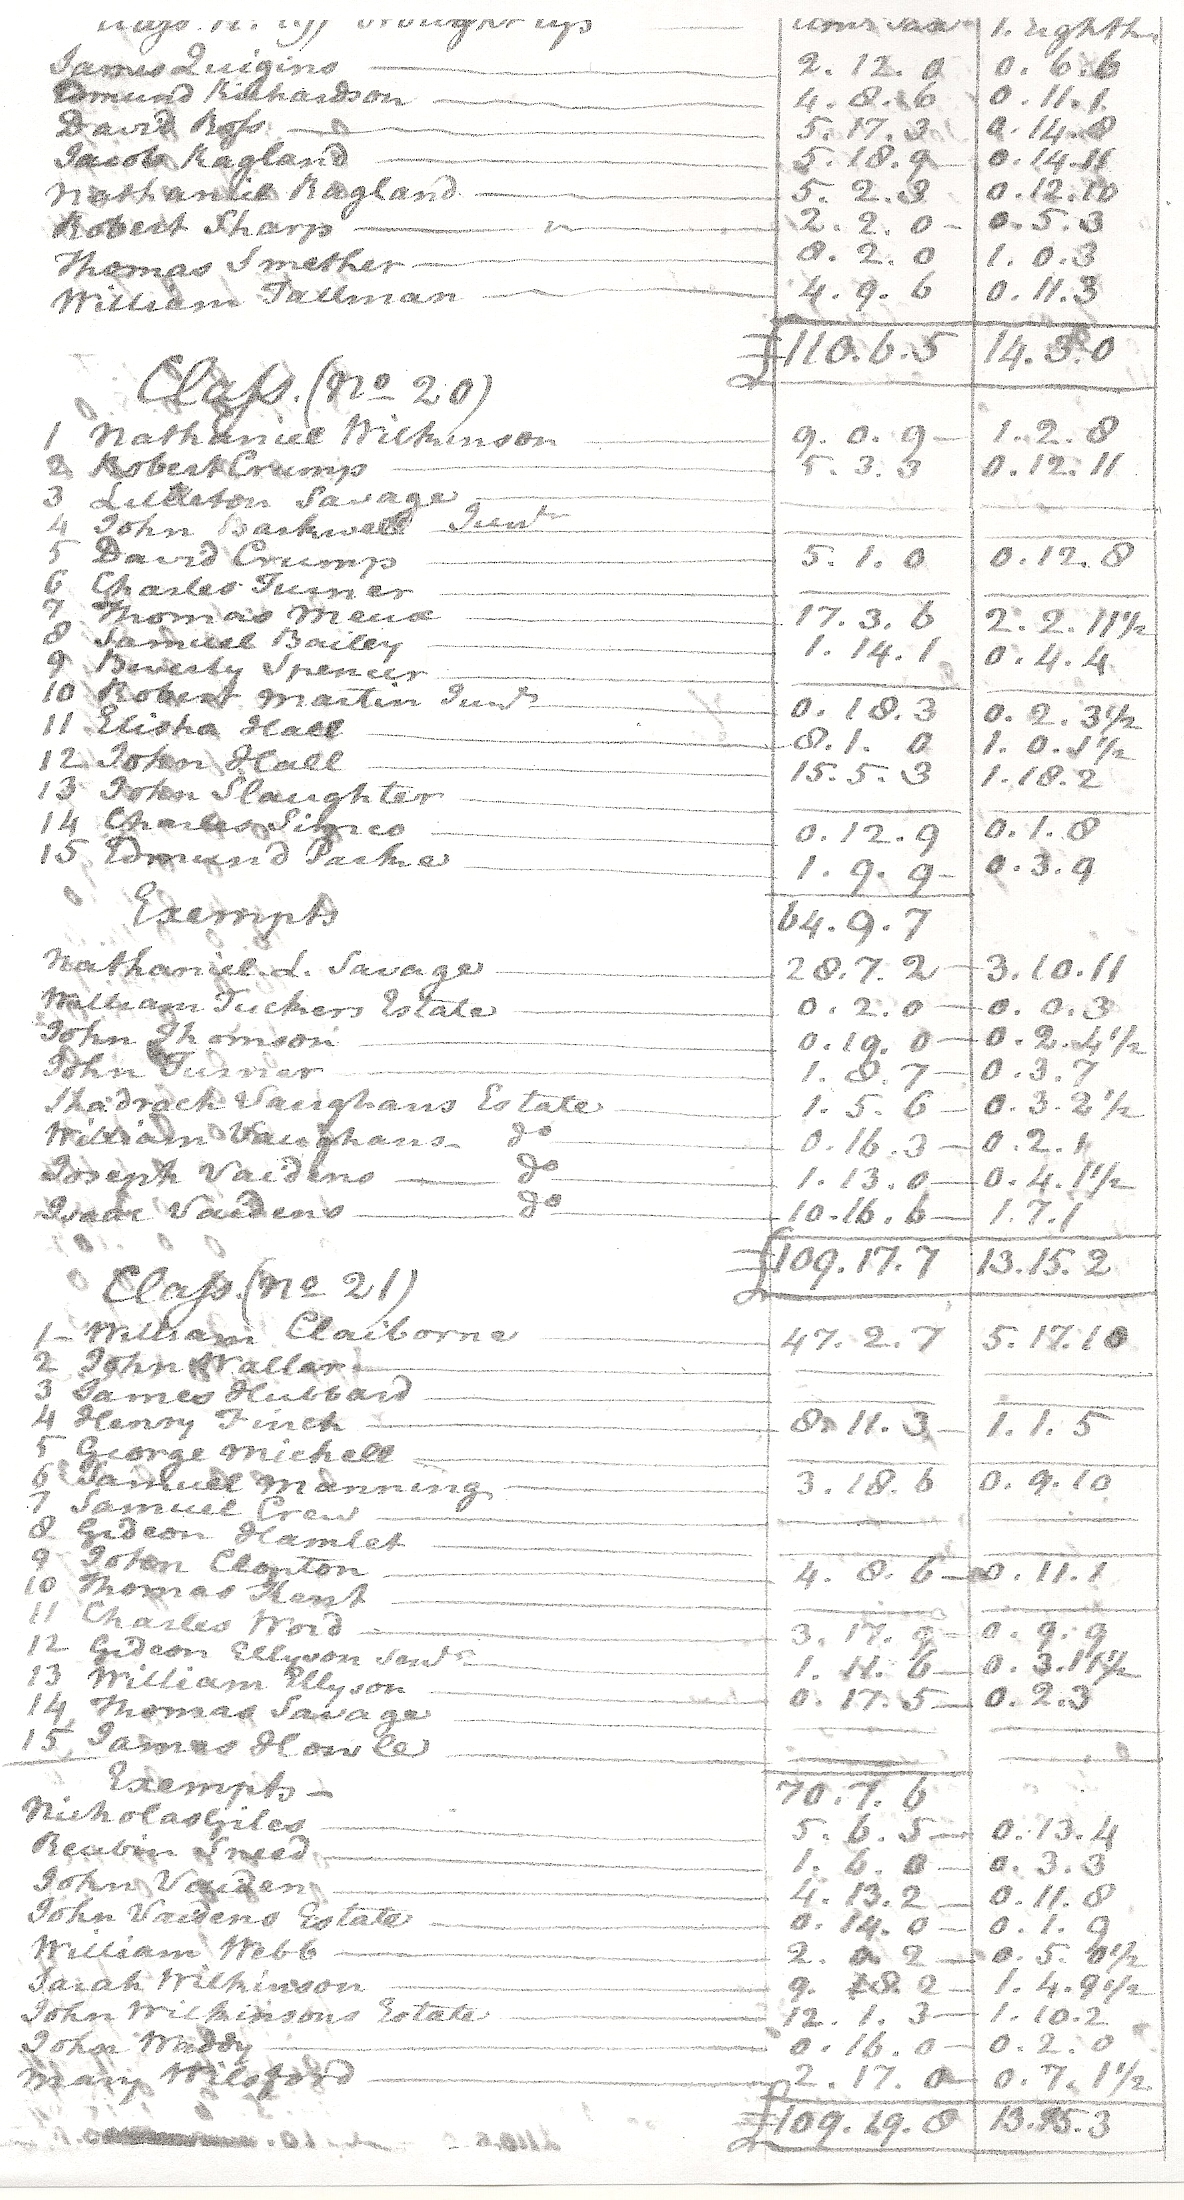 Class. No. 19) brought up
James Quigins 2. 12. 0 0. 6. 6
Edmund Richardson 4. 8. 6 0. 11. 1
David Ross 5. 17. 3 0. 14. 8
Jacob Ragland 5. 18. 9 0. 14. 11
Nathaniel Ragland 5. 2. 3 0. 12. 10
Robert Sharp 2. 2. 0 0. 5. 3
Thomas Smether 8. 2. 0 1. 0. 3
William Tallman 4. 9. 6 0. 11. 3
£110. 6. 5 14. 3. 0
Class. (No 20)
1 Nathaniel Wilkinson 9. 0. 9 1. 2. 8
2 Robert Crump 5. 3. 3 0. 12. 11
3 Littleton Savage
4 John Barkwell Junr
5 David Crump 5. 1. 0 0. 12. 8
6 Charles Turner
7 Thomas Meux 17. 3. 6 2. 2. 11½
8 Samuel Bailey 1. 14. 1 0. 4. 4
9 Beverly Spencer
10 Robert Martin Junr 0. 18. 3 0. 2. 3½
11 Elisha Hall 8. 1. 0 1. 0. 1½
12 John Hall 15. 5. 3 1. 18. 2
13 John Slaughter
14 Charles Simco 0. 12. 9 0. 1. 8
15 Edmund Parke 1. 9. 9 0. 3. 9
Exempts 64. 9. 7
Nathaniel L. Savage 28. 7. 2 3. 10. 11
William Tuckers Estate 0. 2. 0 0. 0. 3
John Thomson 0. 19. 0 0. 2. 4½
John Turner 1. 8. 7 0. 3. 7
Shadrach Vaughans Estate 1. 5. 6 0. 3. 2½
William Vaughans do 0. 16. 3 0. 2. 1
Joseph Vaidens do 1. 13. 0 0. 4. 1½
Isaac Vaidens do 10. 16. 6 1. 7. 1
£109. 17. 7 13. 15. 2
Class. (No 21)
1 William Claiborne 47. 2. 7 5. 17. 10
2 John Wallar
3 James Hubbard
4 Henry Finch 8. 11. 3 1. 1. 5
5 George Michell
6 Samuel Manning 3. 18. 6 0. 9. 10
7 Samuel Crew
8 Gideon Hamlet
9 John Clopton 4. 8. 6 0. 11. 1
10 Thomas Kent
11 Charles Word 3. 17. 9 0. 9. 9
12 Gideon Ellyson Senr 1. 11. 6 0. 3. 11½
13 William Ellyson 0. 17. 5 0. 2. 3
14 Thomas Savage
15 James Howle
Exempts 70. 7. 6
Nicholas Giles 5. 6. 5 0. 13. 4
Reubin Sneed 1. 6. 0 0. 3. 3
John Vaiden 4. 13. 2 0. 11. 8
John Vaidens Estate 0. 14. 0 0. 1. 9
William Webb 2. 0. 2 0. 5. 0½
Sarah Wilkinson 9. 18. 2 1. 4. 9½
John Wilkinsons Estate 12. 1. 3 1. 10. 2
John Waddy 0. 16. 0 0. 2. 0
Mary Wilsford 2. 17. 0 0. 7. 1½
£109. 19. 8 13. 15. 3